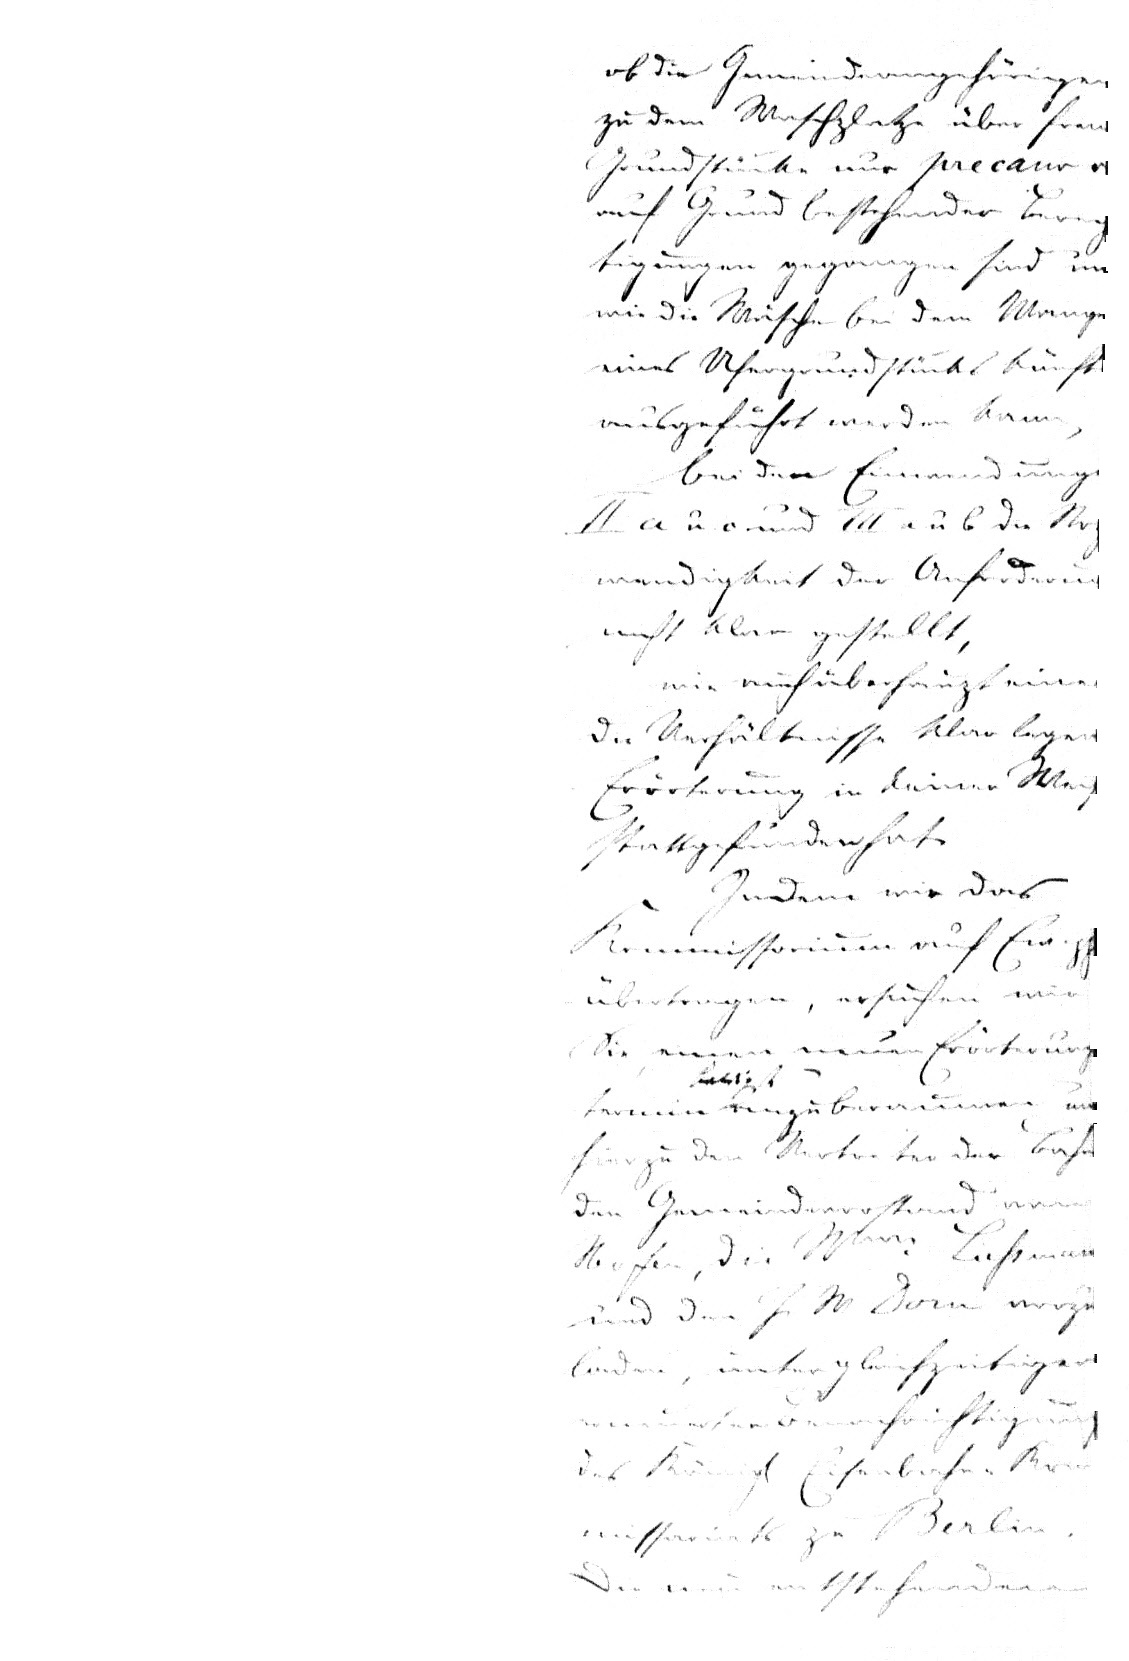 ob die Gemeindeangehörigen
zu dem Waschplatze über frem
Grundstücke nur precario o
auf Grund bestehender Berech
tigungen gegangen sind un
wie die Wäsche bei dem Mange
eines Ufergrundstücks künft
ausgeführt werden kann,
bei den Einwendunge
II a u c und III a u b die Not
wendigkeit der Anforderung
nicht klar gestellt,
wie auch überhaupt eine
die Verhältnisse klar legen
Erörterung in keiner Weis
stattgefunden hat.
Indem wir das
Kommissorium auf Ew.
übertragen, ersuchen wir
Sie, einen neuen Erörterungs
termin anzuberaumen un
hierzu den Vertreter der Bahn
den Gemeindevorstand von
die Lachman
und den F W Dorn vorzu
laden, unter gleichzeitiger
erneuerter Benachrichtigung
des Königl Eisenbahn Kom
missariats zu Berlin.
Die neu entstehenden